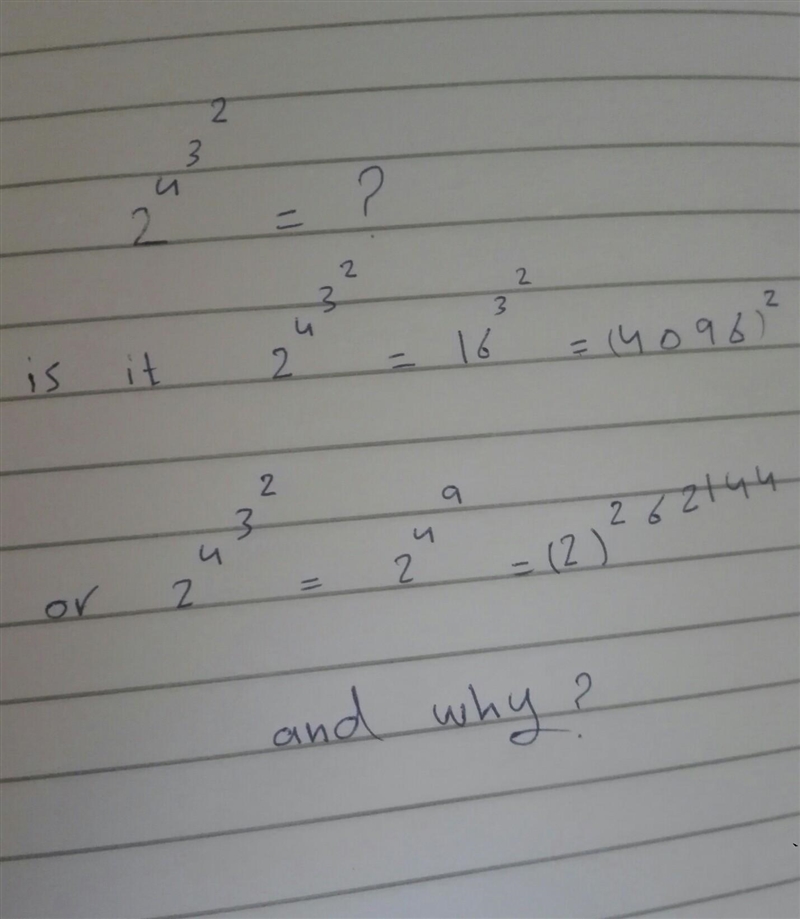 2^4^3^2 = ?
is it 2^4^3^2 = 16^3^2 = (4096)^2
or 2^4^3^2 = 2^4^9 = (2)^262144
and why?